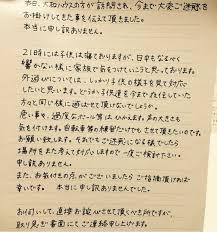 本日、大和ハウスの方が訪問され、今まで大変ご迷惑を
お掛けしてきた事を伝えて頂きました。
本当に申し訳ありません。
21時には子供は寝ておりますが、日中もなるべく
響かない様に家族で気をつけていこうと思っております。
外遊びについては、しっかり子供の様子を見て対応し
たいと思います。どうか子供達を今まで
方々と同じ様に遊ばせて頂けないでしょうか。
悪い事や、過度なボール
気を付けます。自転車等の練習だけでもさせて頂きたいのです。
お願い致します。それでもご迷惑になる様でしたら
場所をまた考えて行かいますので一度ご検討下さい。
申し訳ありません。
また、お気付きの点がございましたらご指摘頂ければ
幸いです。本当に申し訳ありませんでした。
お伺いして、直接お詫びさせて頂くべき所ですが、
取り急ぎ書面にてご連絡申し上げます。